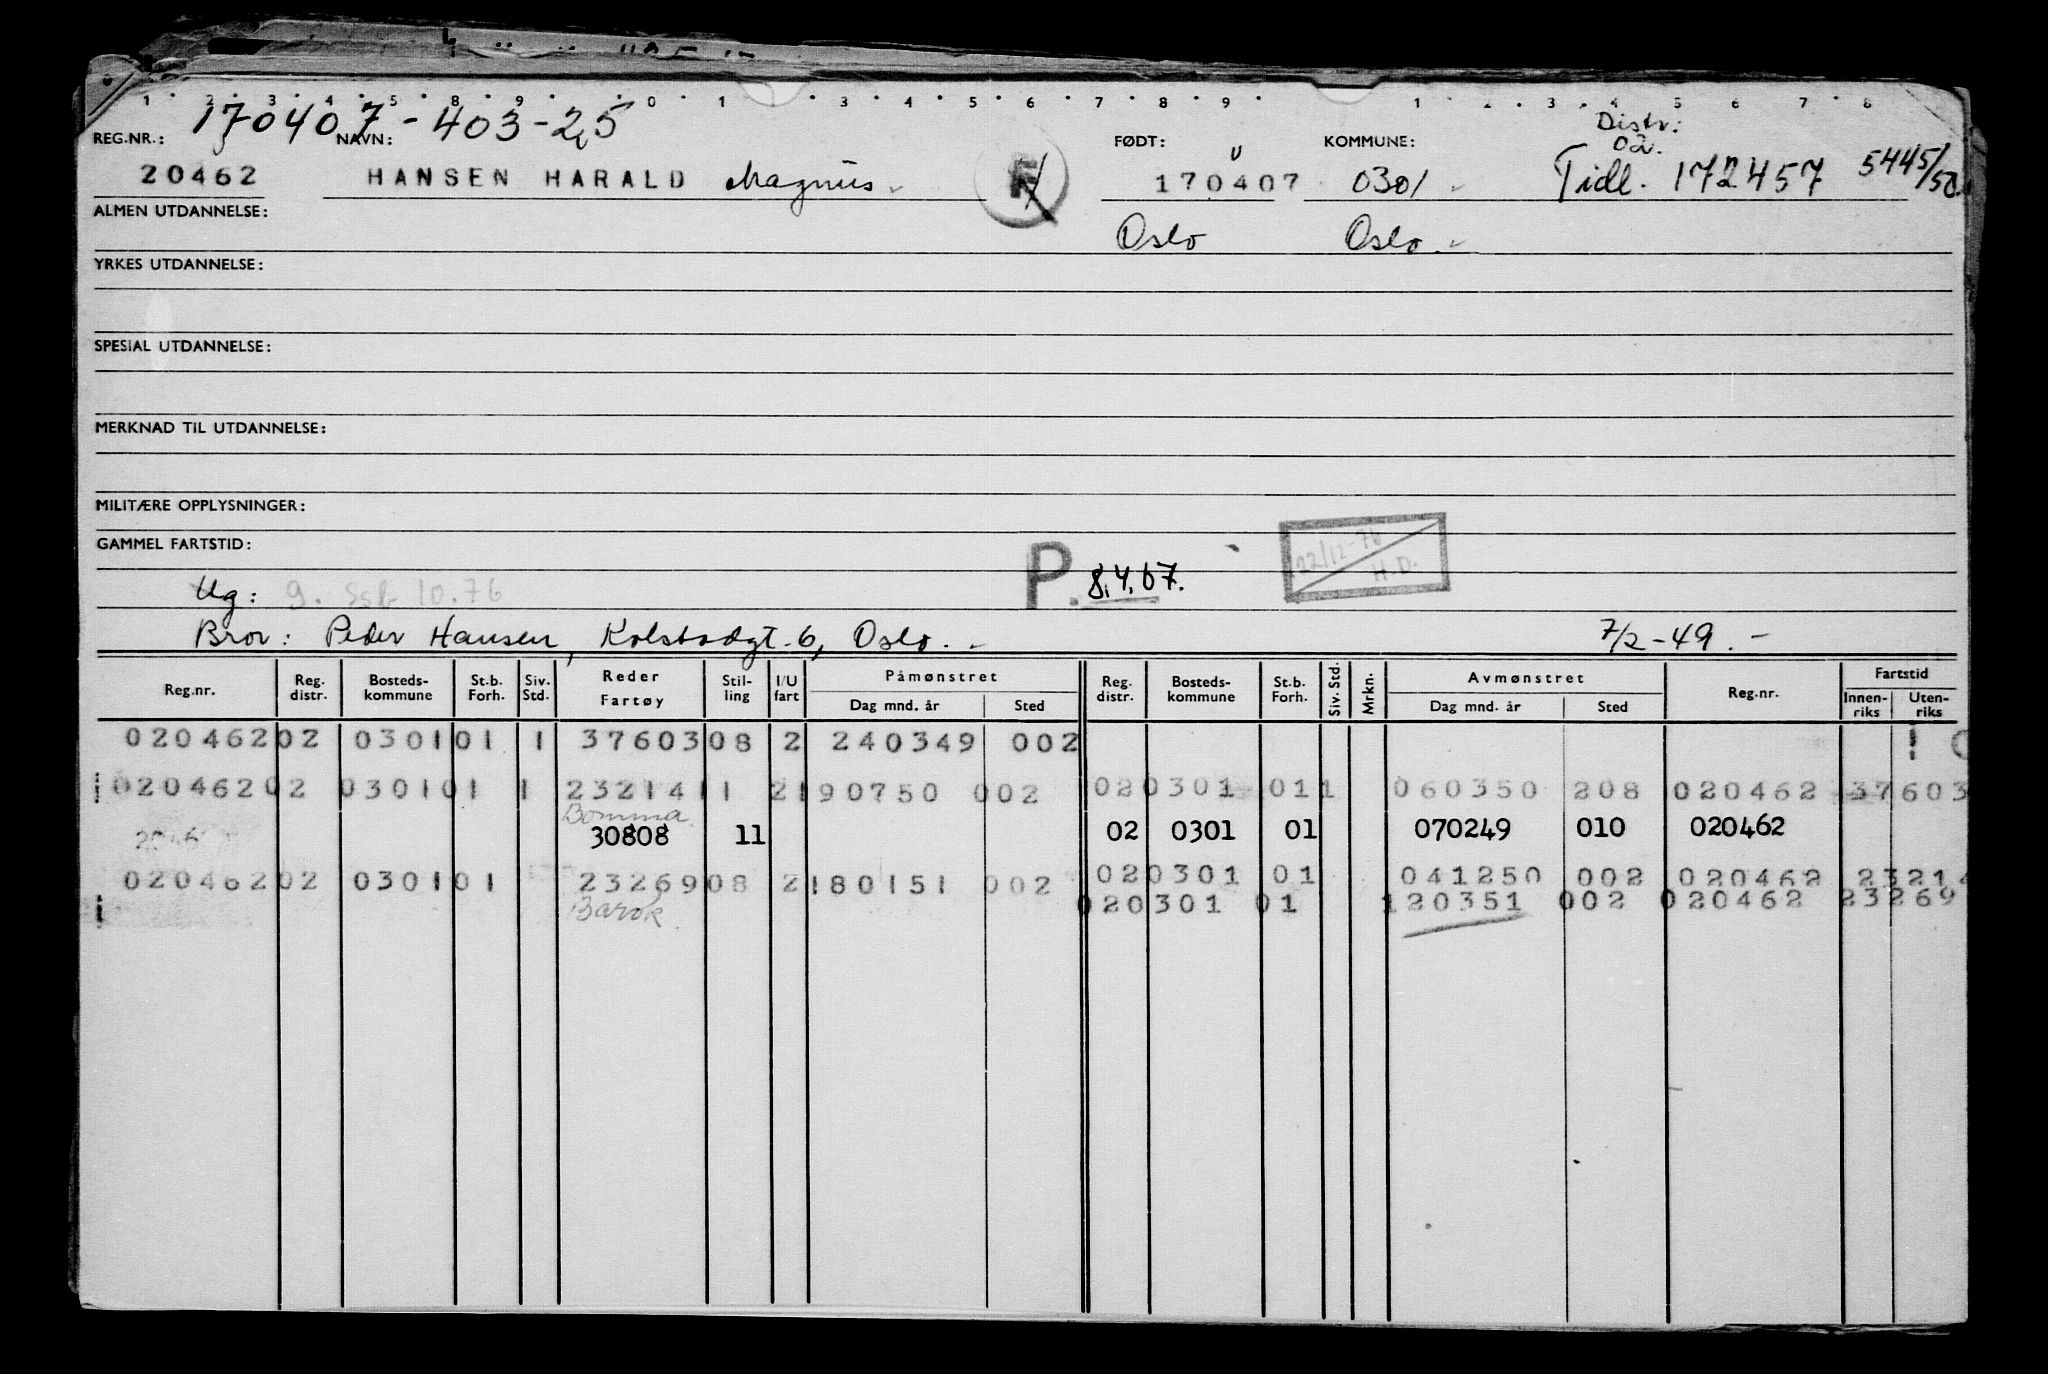 1 2 3 4 5 8 9 0 1 3 4 5 6 7 8 9 1 2 3 4 5 6 7 8
170407-403-25
REG.NR.: NAVN: FØDT: KOMMUNE: Distr: 02.
20462 HANSEN HARALD Magnus 170407 0301 Tidl. 172457 5445/50
ALMEN UTDANNELSE: Oslo Oslo.
YRKES UTDANNELSE:
SPESIAL UTDANNELSE:
MERKNAD TIL UTDANNELSE:
MILITÆRE OPPLYSNINGER:
GAMMEL FARTSTID:
P. 8.4.67. 22/12-76 H.D.
Ug: 9. Ssb 10.76
Bror: Peder Hansen, Kolstadgt. 6, Oslo. - 7/2-49. -
Reg.nr. Reg. distr. Bosteds-kommune St.b. Forh. Siv. Std. Reder Fartøy Stil-ling I/U fart Påmønstret Dag mnd. år Sted Reg. distr. Bosteds-kommune St.b. Forh. Siv. Std. Mrkn. Avmønstret Dag mnd. år Sted Reg.nr. Fartstid Innen-riks Uten-riks
020462 02 0301 01 1 37603 08 2 240349 002
020462 02 0301 01 1 23214 11 2 190750 002 02 0301 01 1 060350 208 020462 37603
Bomma
30808 11 02 0301 01 070249 010 020462
020462 02 0301 01 23269 08 2 180151 002 02 0301 01 041250 002 020462 23214
Barok 02 0301 01 120351 002 020462 23269